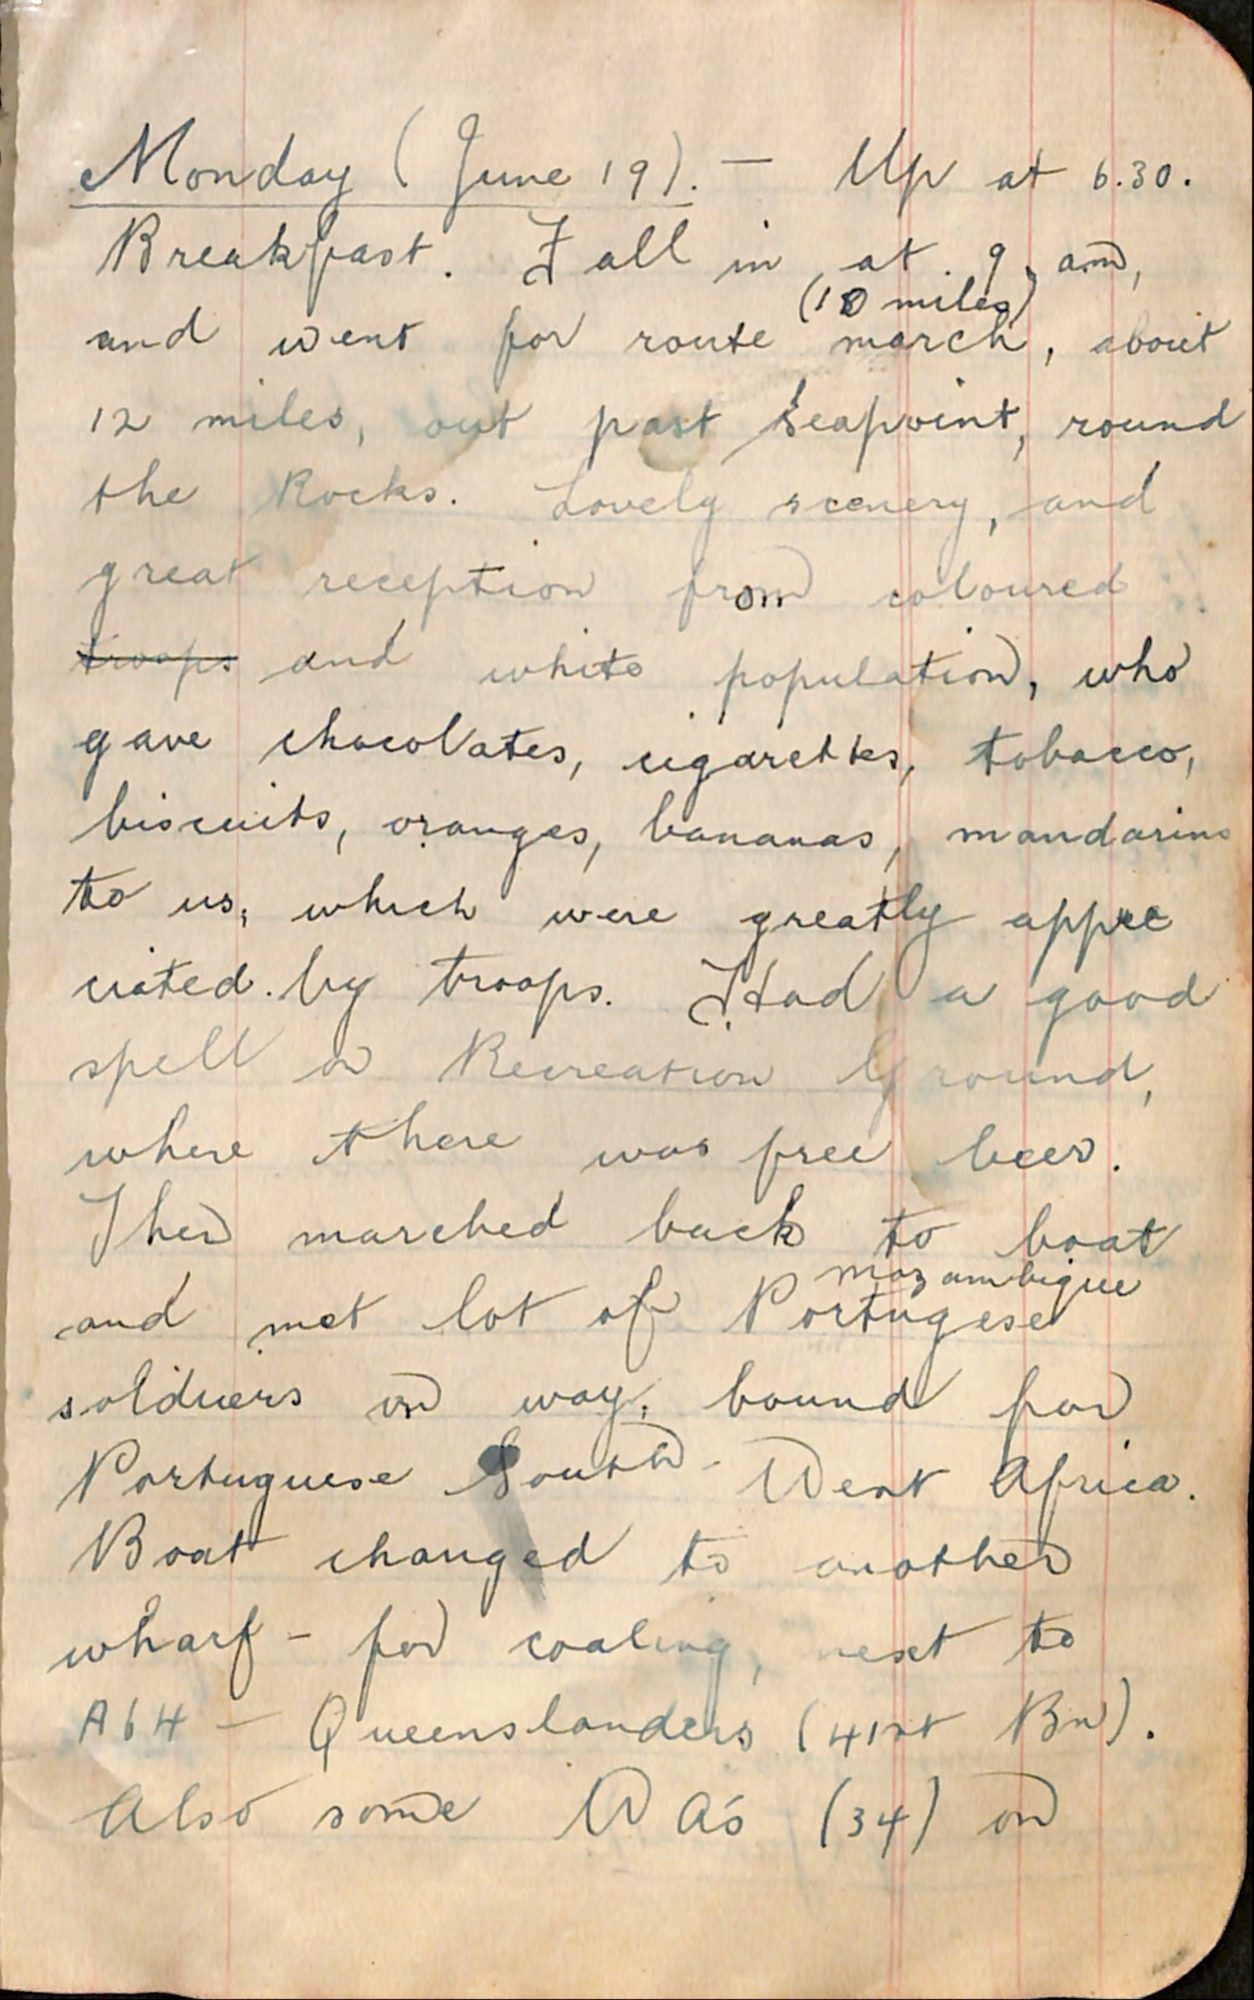 Monday (June 19). — Up at 6.30.
Breakfast. Fall in at 9 am,
(10 miles)
and went for route march, about
12 miles, out past Seapoint, round
the Rocks. Lovely scenery, and
great reception from coloured
troops and white population, who
gave chocolates, cigarettes, tobacco,
biscuits, oranges, bananas, mandarins
to us, which were greatly appre
ciated by troops. Had a good
spell on Recreation Ground,
where there was free beer.
Then marched back to boat
mozambique
and met lot of Portugese
soldiers on way, bound for
Portuguese South-West Africa.
Boat changed to another
wharf - for coaling, next to
A64 - Queenslanders (41st Bn).
Also some W A's (34) on